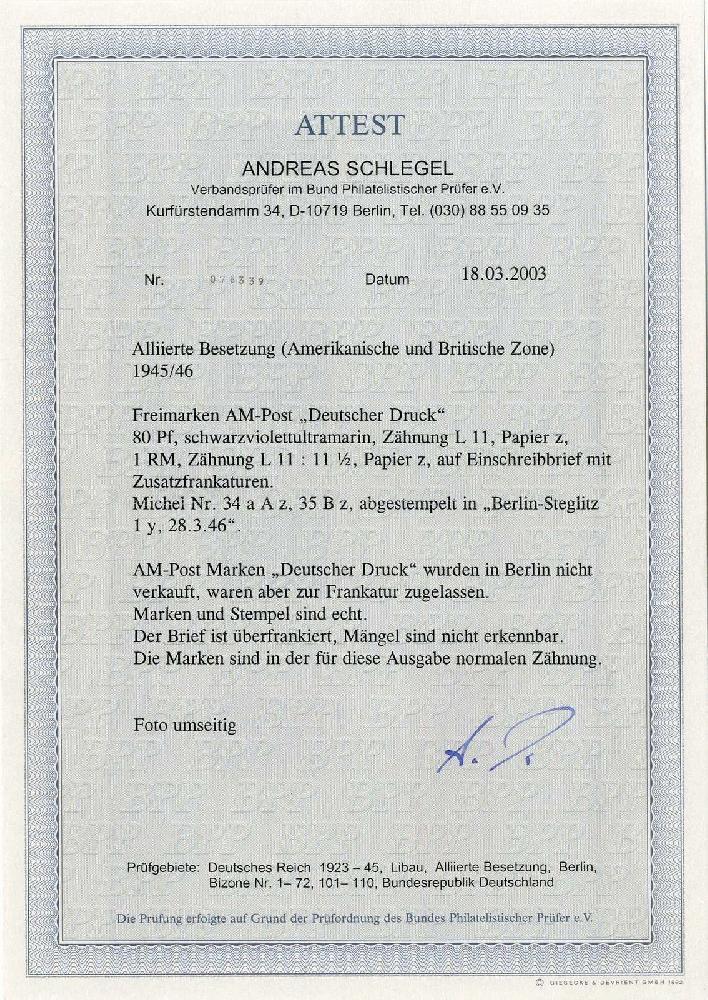 ATTEST
ANDREAS SCHLEGEL
Verbandsprüfer im Bund Philatelistischer Prüfer e.V.
Kurfürstendamm 34, D-10719 Berlin, Tel. (030) 88 55 09 35
Nr. Datum 18.03.2003
Alliierte Besetzung (Amerikanische und Britische Zone)
1945/46
Freimarken AM-Post „Deutscher Druck“
80 Pf, schwarzviolettultramarin, Zähnung L 11, Papier z,
1 RM, Zähnung L 11 : 11 ½, Papier z, auf Einschreibbrief mit
Zusatzfrankaturen.
Michel Nr. 34 a A z, 35 B z, abgestempelt in „Berlin-Steglitz
1 y, 28.3.46“.
AM-Post Marken „Deutscher Druck“ wurden in Berlin nicht
verkauft, waren aber zur Frankatur zugelassen.
Marken und Stempel sind echt.
Der Brief ist überfrankiert, Mängel sind nicht erkennbar.
Die Marken sind in der für diese Ausgabe normalen Zähnung.
Foto umseitig
Prüfgebiete: Deutsches Reich 1923 – 45, Libau, Alliierte Besetzung, Berlin,
Bizone Nr. 1– 72, 101– 110, Bundesrepublik Deutschland
Die Prüfung erfolgte auf Grund der Prüfordnung des Bundes Philatelistischer Prüfer e.V.
© GIESECKE & DEVRIENT GMBH